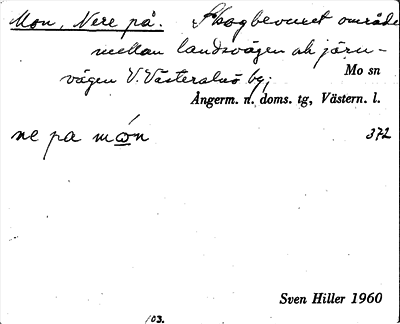 Mon, Nere på. Skogbevuxet område
mellan landsvägen och järn-
vägen V. Västeralnö by;
Mo sn
Ångerm. n. doms. tg, Västern. l.
ne pa mo̲n
372
Sven Hiller 1960
103.